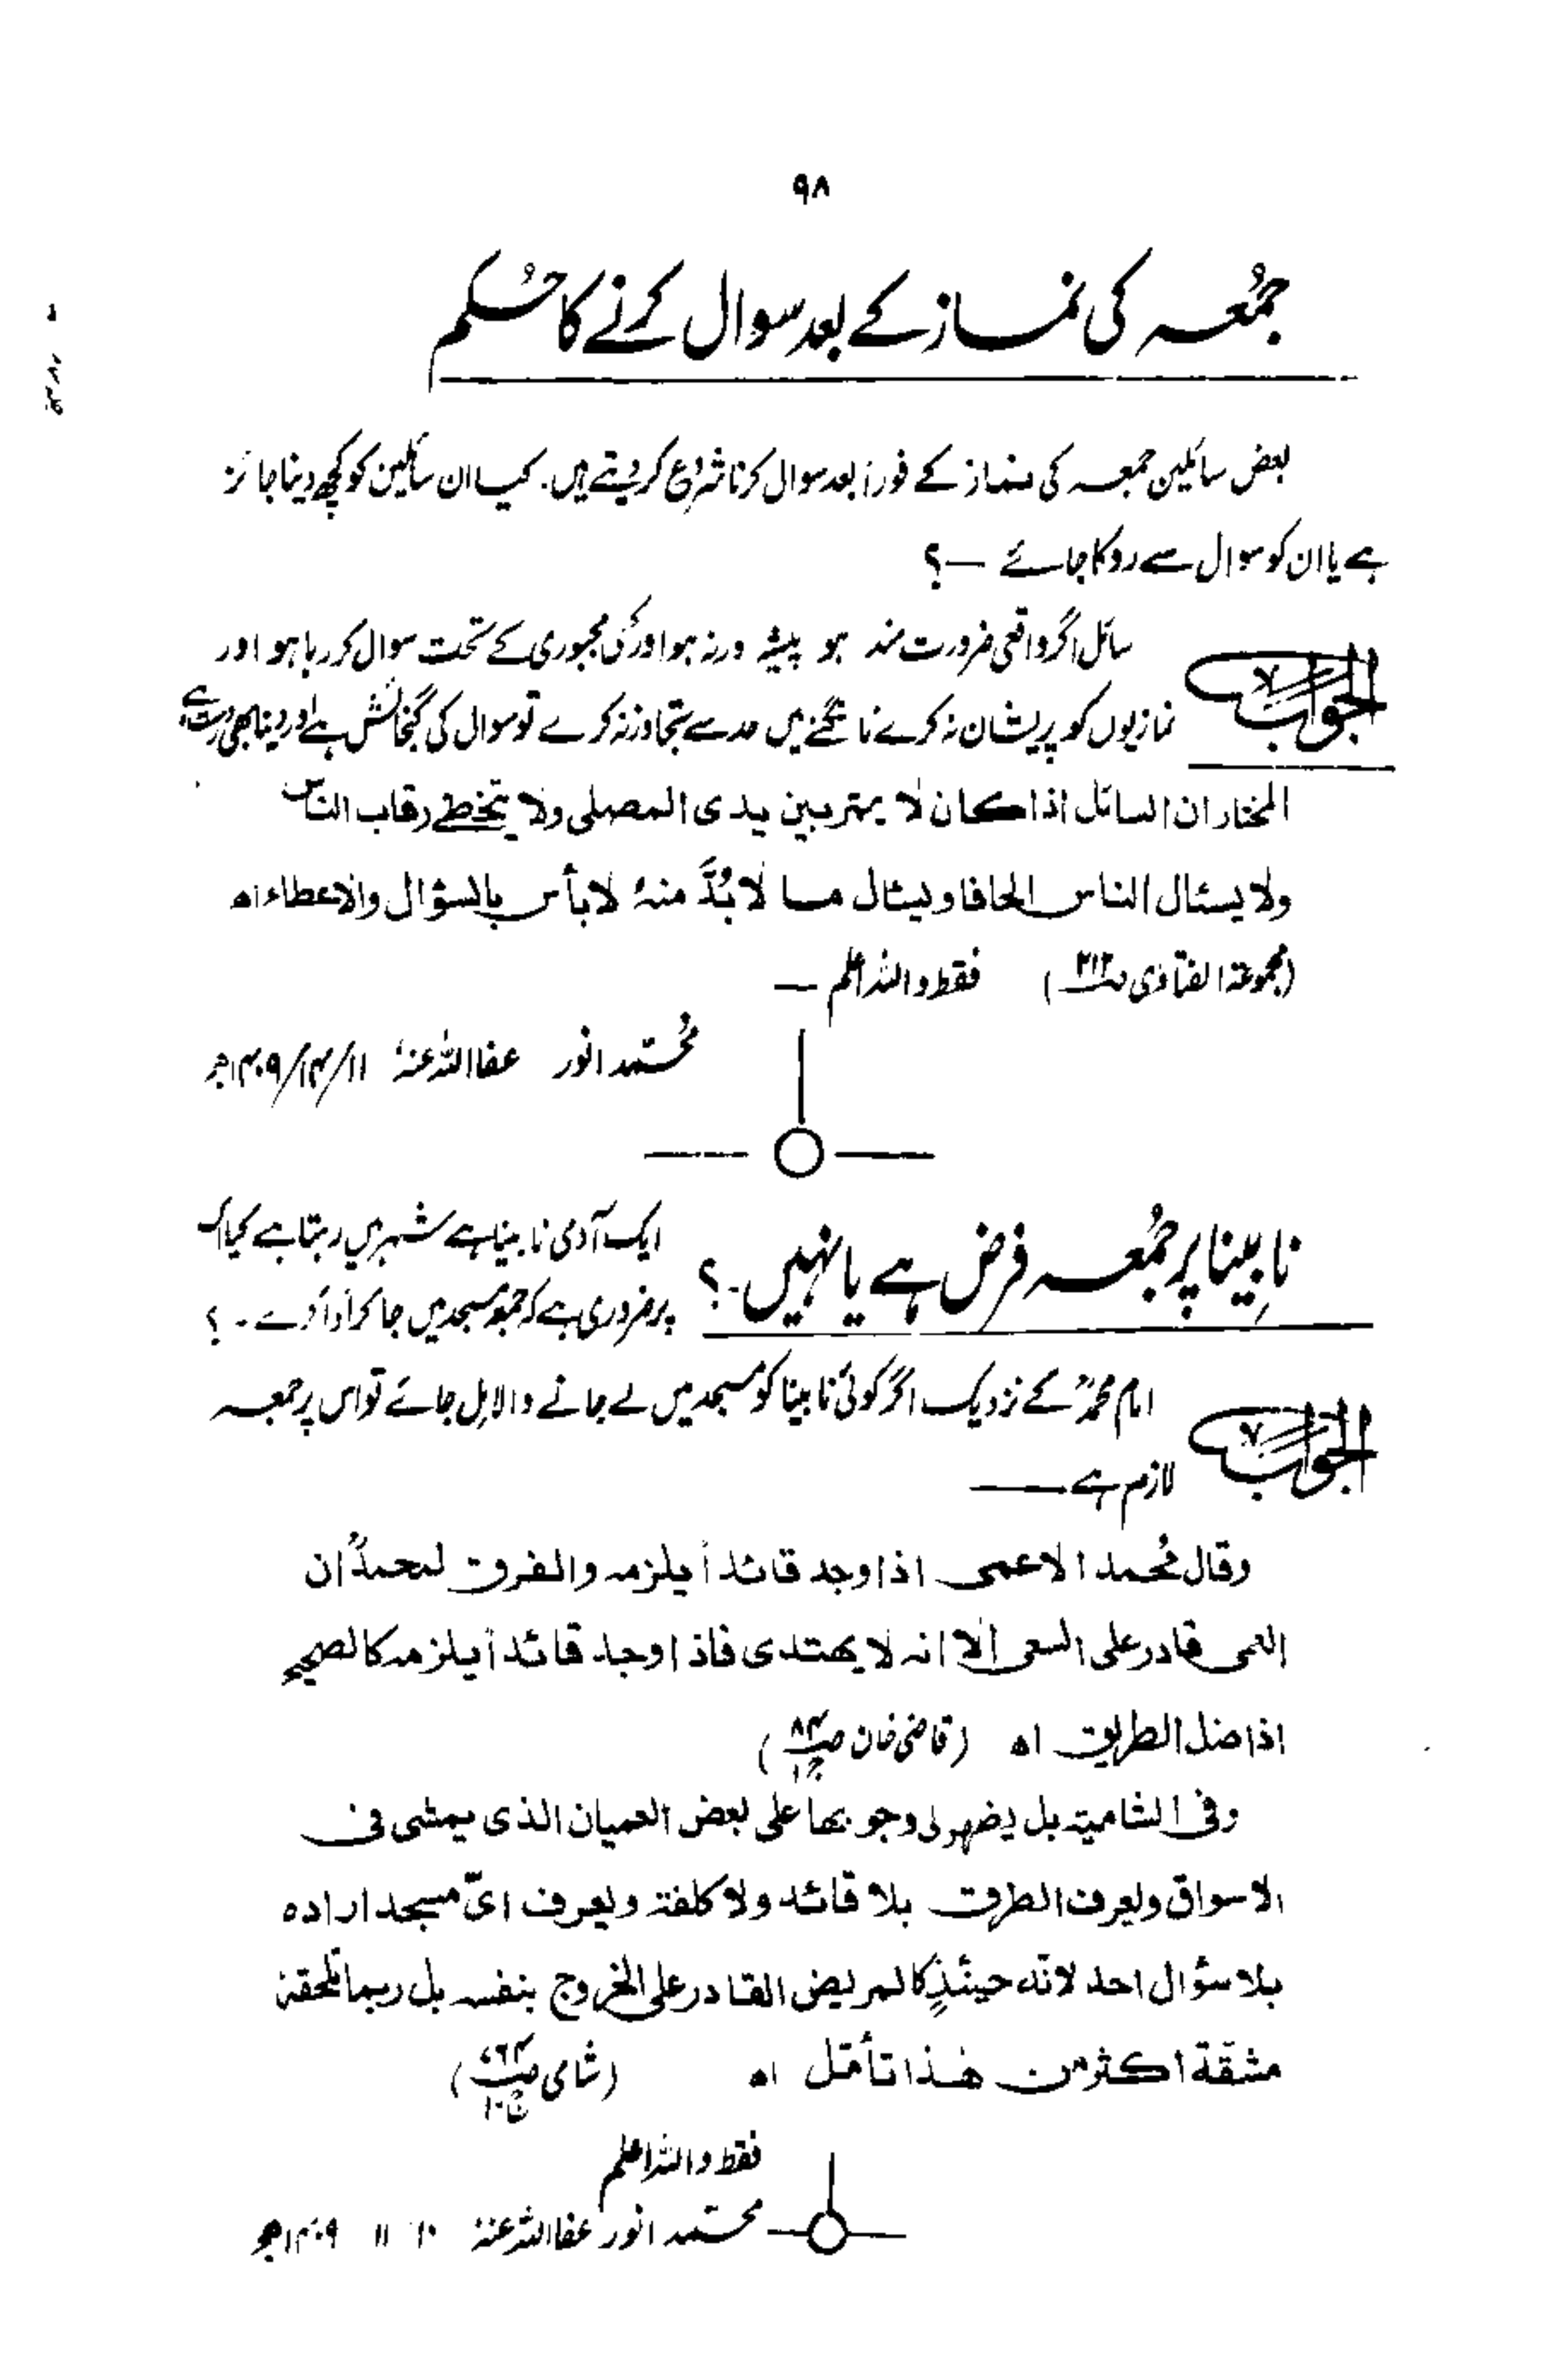 ۹۸
جمُعہ کی نماز کے بعد سوال کرنے کا حُکم
بعض سائلین جمعہ کی نماز کے فوراً بعد سوال کرنا شروع کر دیتے ہیں۔ کیا ان سائلین کو کچھ دینا جائز
ہے یا ان کو سوال سے روکا جائے —؟
الجواب سائل اگر واقعی ضرورت مند ہو پیشہ ور نہ ہو اور کسی مجبوری کے تحت سوال کر رہا ہو اور
نمازیوں کو پریشان نہ کرے مانگنے میں حد سے تجاوز نہ کرے تو سوال کی گنجائش ہے اور دینا بھی درست ہے
المختار ان السائل اذا کان لا یمر بین یدی المصلی ولا یتخطے رقاب الناس
ولا یسئال الناس الحافا ویسئال مسا لا بُدَّ منہُ لا بأس بالسؤال والاعطاء اھ
(مجموعۃ الفتاوٰی ص۲۱۲) فقط واللہ اعلم —
محمّد انور عفا اللہ عنہٗ ۱۱/۱۴/۱۴۰۹ھ
نابینا پر جمُعہ فرض ہے یا نہیں۔؟ ایک آدمی نابینا ہے شہر میں رہتا ہے کیا اس
پر ضروری ہے کہ جمعہ مسجد میں جا کر ادا کرے ۔؟
الجواب امام محمدؒ کے نزدیک اگر کوئی نابینا کو مسجد میں لے جانے والا مِل جائے تو اس پر جمعہ
لازم ہے —
وقال مُحمد الاعمی اذا وجد قائداً یلزمہ والفرق لمحمدؒ ان
العمی قادر علی السعی الا انہ لا یھتدی فاذا وجد قائداً یلزمہ کالصحیح
اذا ضل الطریق اھ (قاضی خان ص۸۴ ج۱)
وفی الشامیۃ بل یضھر لی وجوبھا علی بعض العمیان الذی یمشی فی
الاسواق ویعرف الطرق بلا قائد ولا کلفۃ ویعرف ایّ مسجد ارادہ
بلا سؤال احد لانّہ حینئذٍ کالمریض القادر علی الخروج بنفسہ بل ربما تلحقہٗ
مشقّۃ اکثر من ھٰذا تأمّل اھ (شامی ص۷۶۲ ج۱)
فقط واللہ اعلم
محمّد انور عفا اللہ عنہٗ ۱۰ ۱۱ ۱۴۰۹ھ